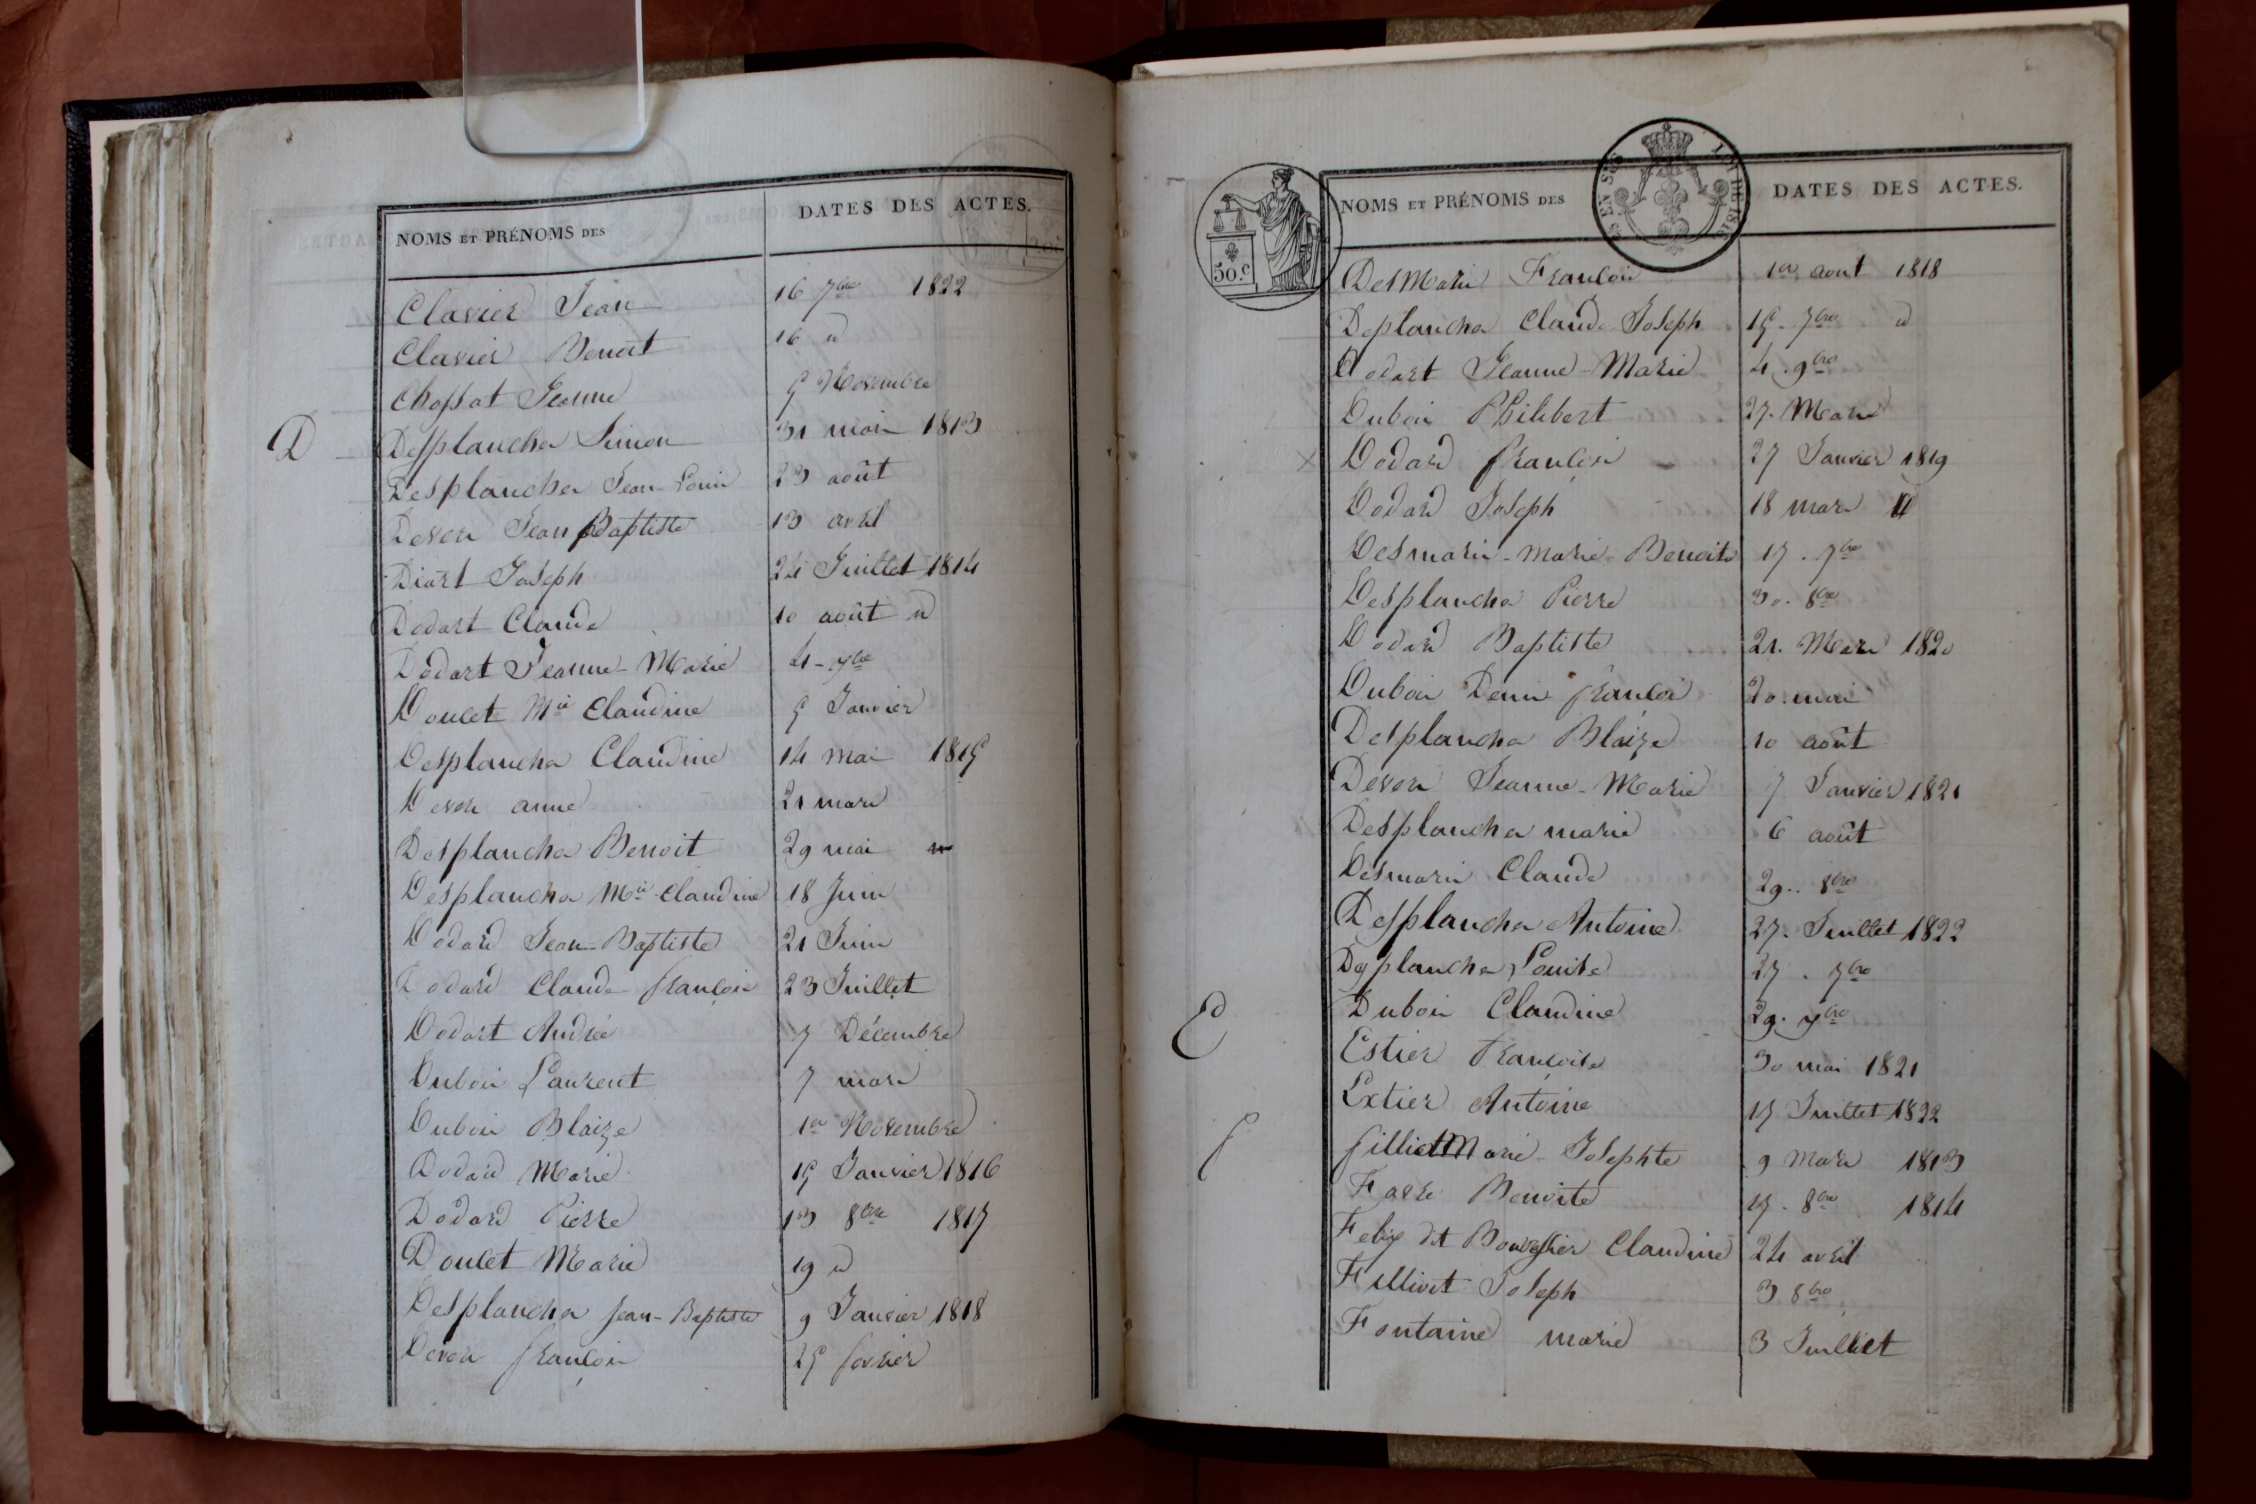 NOMS ET PRÉNOMS DES DATES DES ACTES.
Clavier Jean 16 7bre 1822
Clavier Benoit 16 d
Chossat Jeanne 5 Novembre
D Desplanches Simon 31 mai 1813
Desplanches Jean Louis 23 août
Devors Jean Baptiste 13 avril
Diart Joseph 24 Juillet 1814
Dodart Claude 10 août d
Dodart Jeanne-Marie 4 - 7bre
Doulet Mie Claudine 5 Janvier
Desplanches Claudine 14 mai 1815
Devors anne 21 mars
Desplanches Benoit 29 mai
Desplanches Mie Claudine 18 Juin
Dodard Jean-Baptiste 21 Juin
Dodard Claude françois 23 Juillet
Dodart Andrée 7 Décembre
Dubois Laurent 7 mars
Dubois Blaize 1er Novembre
Dodard Marie 15 Janvier 1816
Dodard Pierre 13 8bre 1817
Doulet Marie 19 d
Desplanches Jean-Baptiste 9 Janvier 1818
Devors françois 25 fevrier
NOMS ET PRÉNOMS DES DATES DES ACTES.
50.c
DesMaris François 1er aout 1818
Deplanches Claude Joseph 15. 7bre d
Dodart Jeanne-Marie 4. 9bre
Dubois Philibert 27. Mars
x Dodard françois 27 Janvier 1819
Dodard Joseph 18 mars
Desmaris-marie-Benoite 17. 7bre
Desplanches Pierre 30. 8bre
Dodard Baptiste 21. Mars 1820
Dubois Denis françois 20. mai
Desplanches Blaize 10 août
Devors Jeanne-Marie 7 Janvier 1821
Desplanches marie 6 août
Desmaris Claude 29.. 8bre
Desplanches Antoine 27. Juillet 1822
Desplanches Louise 27. 7bre
Dubois Claudine 29. 7bre
E Estier Françoise 30 mai 1821
Extier Antoine 17 Juillet 1822
f filliet Marie-Josephte 9 Mars 1813
Favre Benoite 17. 8bre 1814
Felix dit Bouvessier Claudine 24 avril
Fillivet Joseph 3 8bre
Fontaine marie 3 Juillet